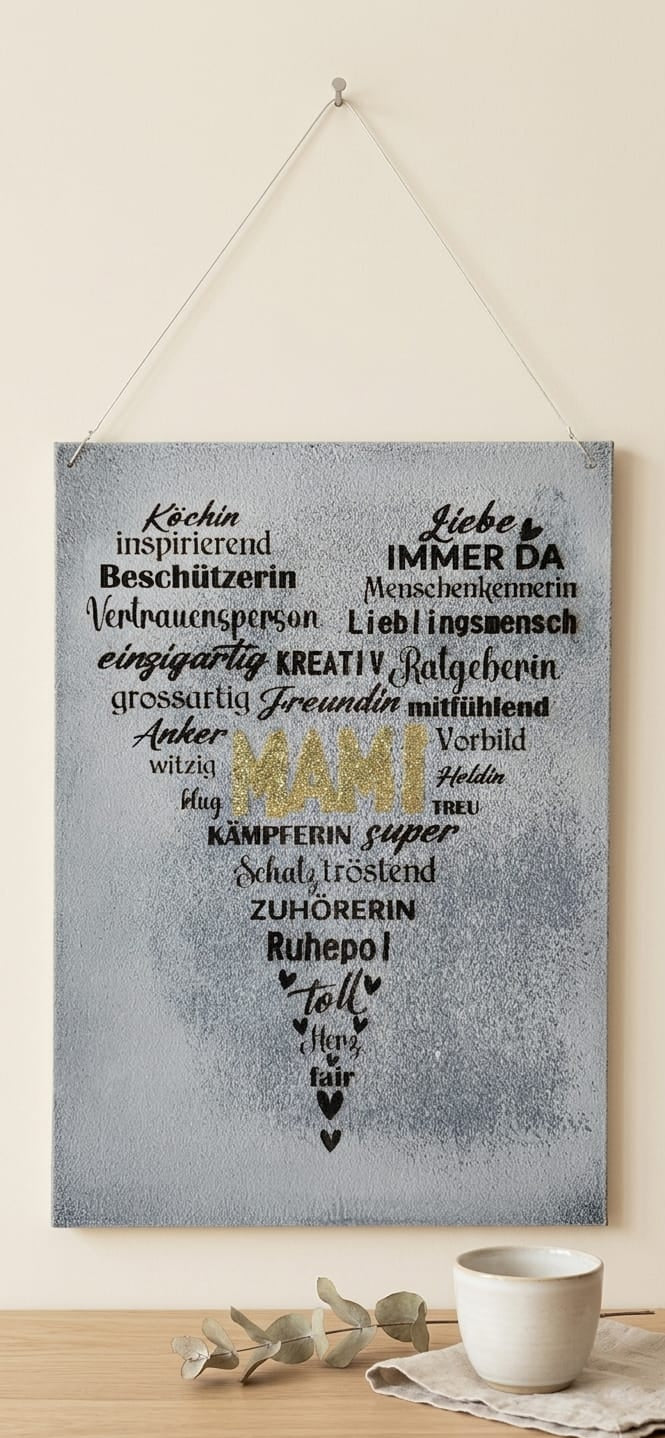 Köchin
Liebe
inspirierend
IMMER DA
Beschützerin
Menschenkennerin
Vertrauensperson
Lieblingsmensch
einzigartig KREATIV Ratgeberin
grossartig Freundin mitfühlend
Anker MAMI Vorbild
witzig
Heldin
klug
TREU
KÄMPFERIN super
Schatz tröstend
ZUHÖRERIN
Ruhepol
toll
Herz
fair